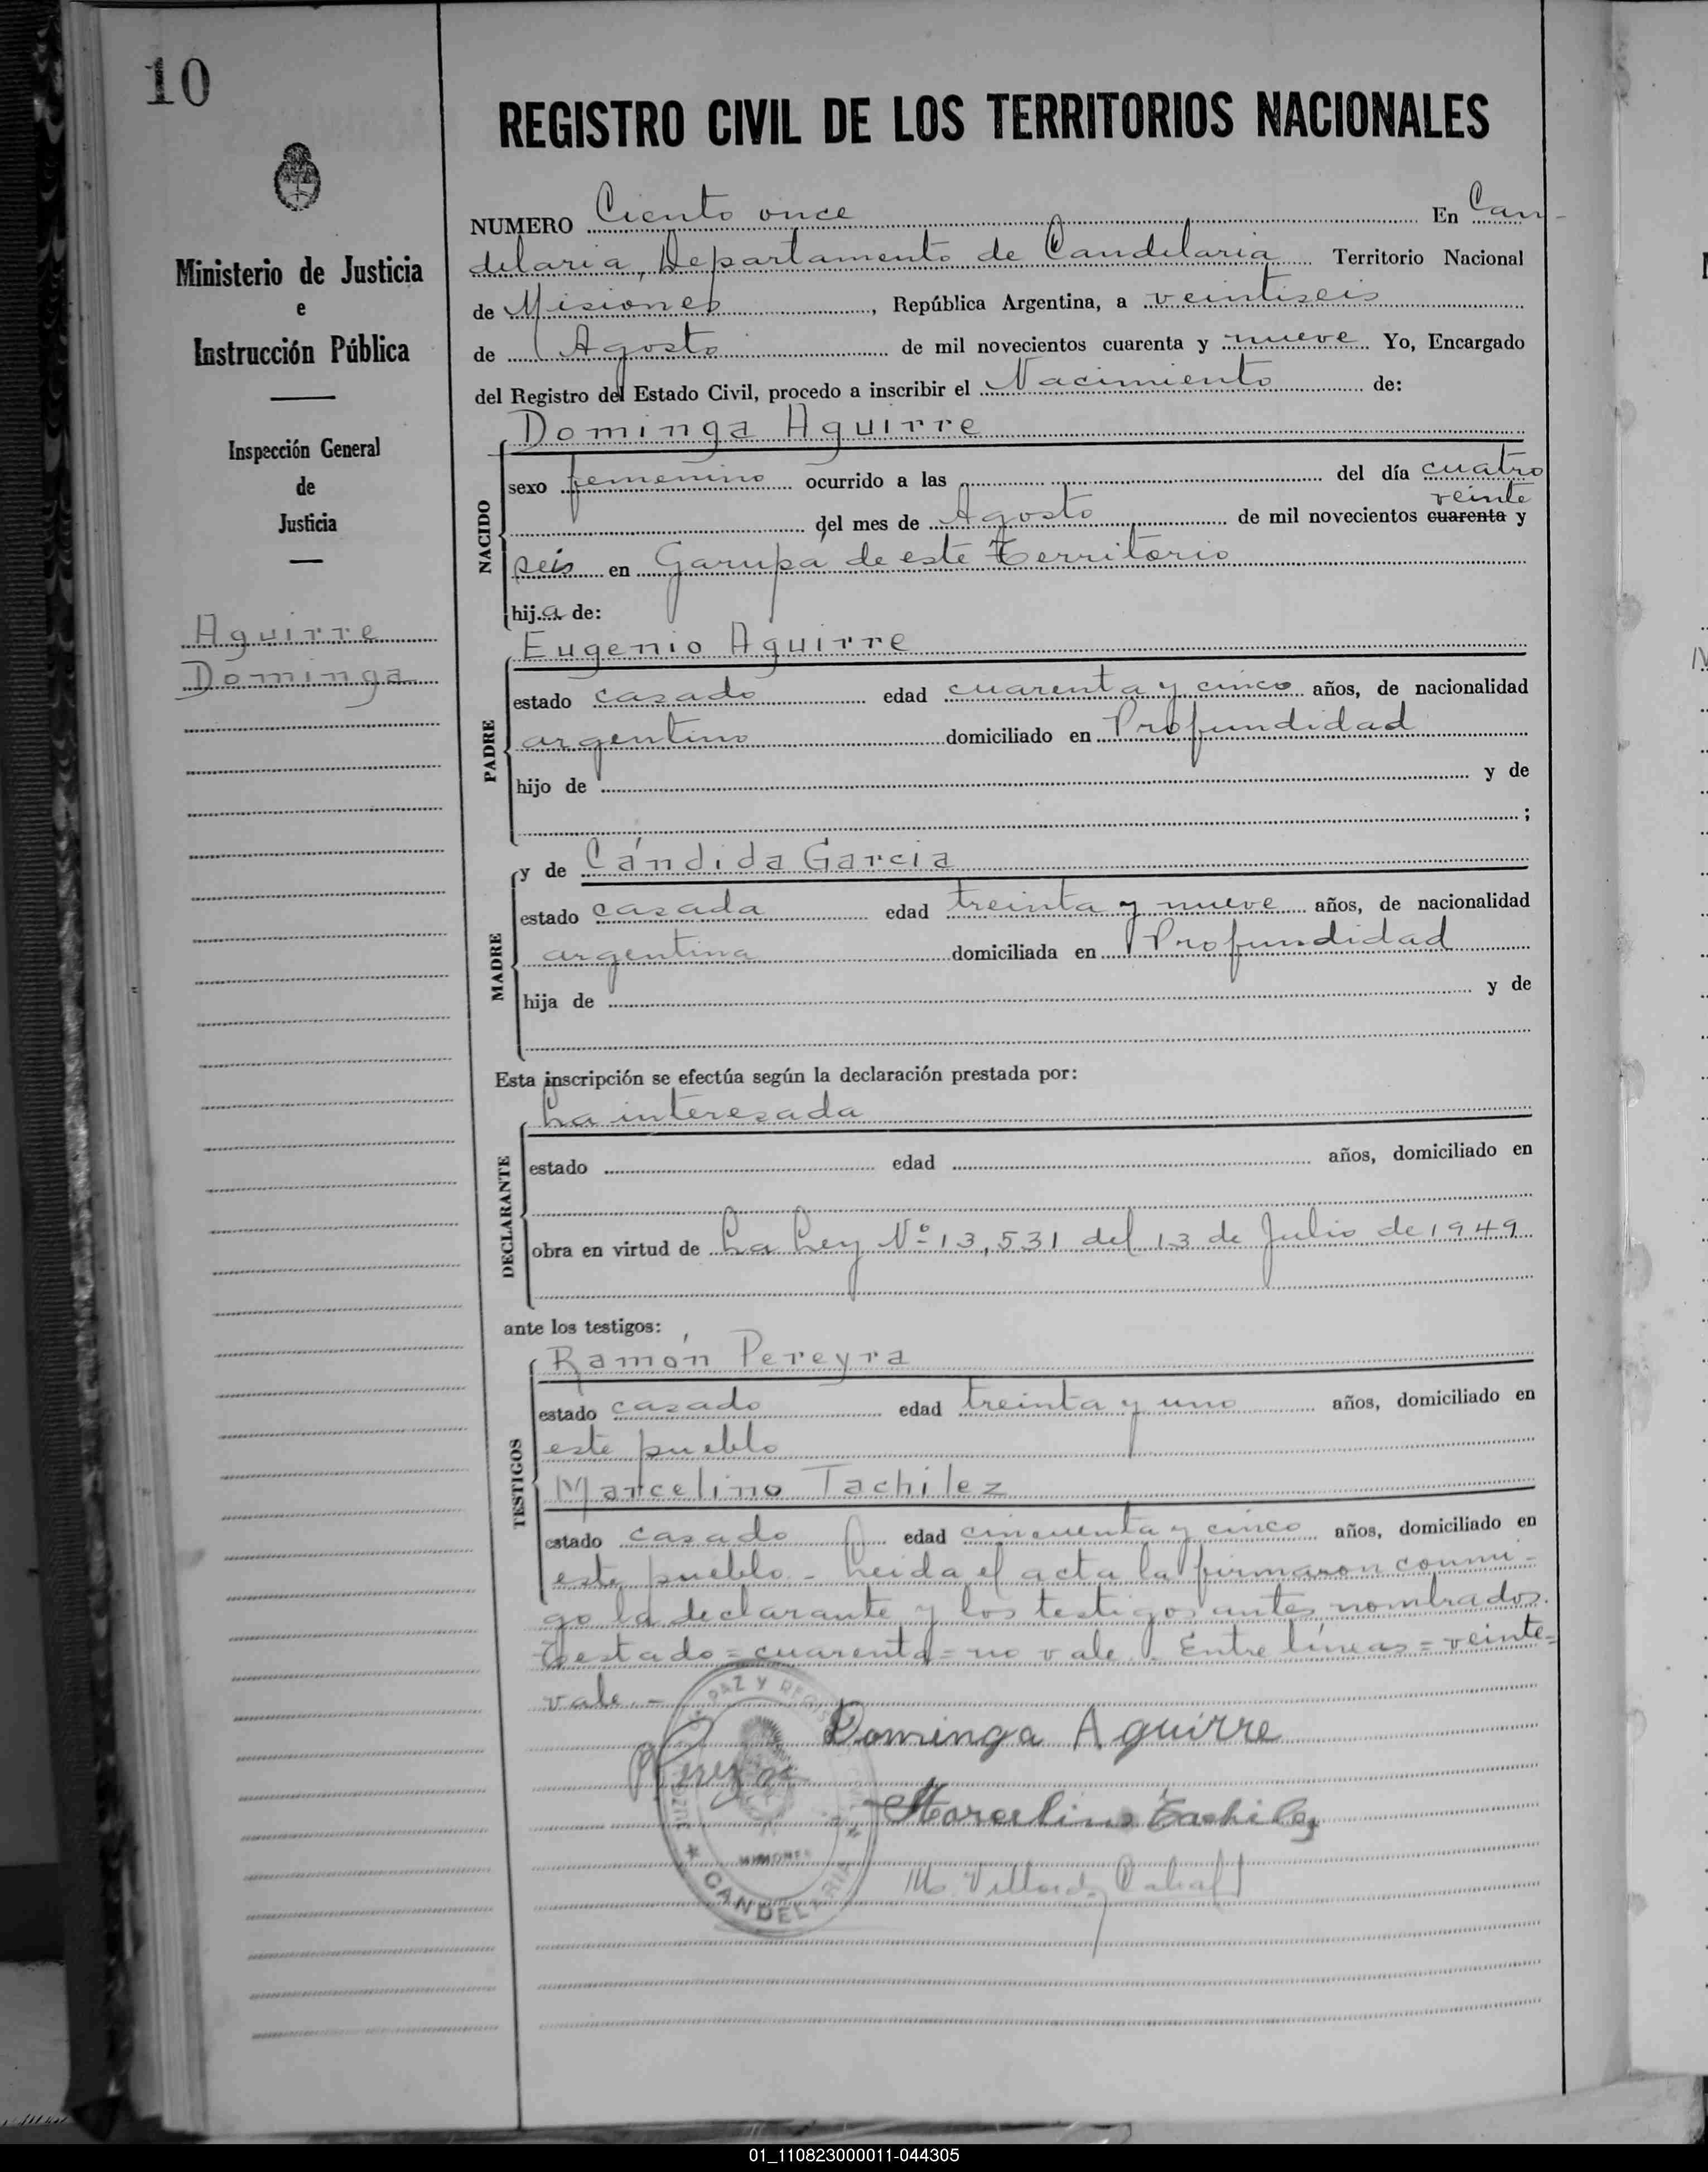 10
Ministerio de Justicia
e
Instrucción Pública
Inspección General
de
Justicia
Aguirre
Dominga
REGISTRO CIVIL DE LOS TERRITORIOS NACIONALES
NUMERO Ciento once En Can-
delaria, Departamento de Candelaria Territorio Nacional
de Misiones, República Argentina, a veintiseis
de Agosto de mil novecientos cuarenta y nueve Yo, Encargado
del Registro del Estado Civil, procedo a inscribir el Nacimiento de:
NACIDO
Dominga Aguirre
sexo femenino ocurrido a las del día cuatro
veinte
del mes de Agosto de mil novecientos cuarenta y
seis en Garupa de este Territorio
hija de:
PADRE
Eugenio Aguirre
estado casado edad cuarenta y cinco años, de nacionalidad
argentino domiciliado en Profundidad
hijo de y de
;
MADRE
y de Cándida Garcia
estado casada edad treinta y nueve años, de nacionalidad
argentina domiciliada en Profundidad
hija de y de
Esta inscripción se efectúa según la declaración prestada por:
DECLARANTE
La interesada
estado edad años, domiciliado en
obra en virtud de La Ley Nº 13,531 del 13 de Julio de 1949
ante los testigos:
TESTIGOS
Ramón Pereyra
estado casado edad treinta y uno años, domiciliado en
este pueblo
Marcelino Tachilez
estado casado edad cincuenta y cinco años, domiciliado en
este pueblo - Leida el acta la firmaron conmi-
go la declarante y los testigos antes nombrados.
Testado = cuarenta = no vale. Entre líneas = veinte =
vale.-
Dominga Aguirre
Marcelino Tachilez
PAZ Y
MISIONES
CANDELARIA
01_110823000011-044305